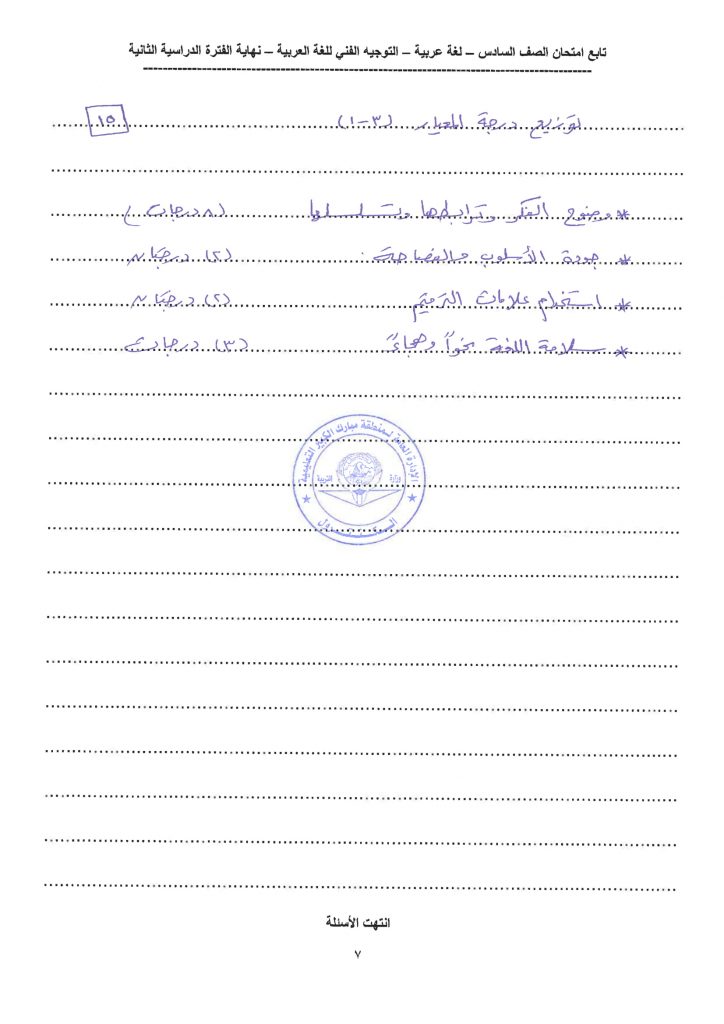 تابع امتحان الصف السادس – لغة عربية – التوجيه الفني للغة العربية – نهاية الفترة الدراسية الثانية
توزيع درجة المعيار (٣-١) ١٥
* وضوح الفكر وترابطها وتسلسلها (٨ درجات)
* جودة الأسلوب والفصاحة : (٢) درجتان
* استخدام علامات الترقيم (٢) درجتان
* سلامة اللغة نحواً وهجاءً (٣) درجات
الإدارة العامة لمنطقة مبارك الكبير التعليمية
وزارة التربية
انتهت الأسئلة
٧